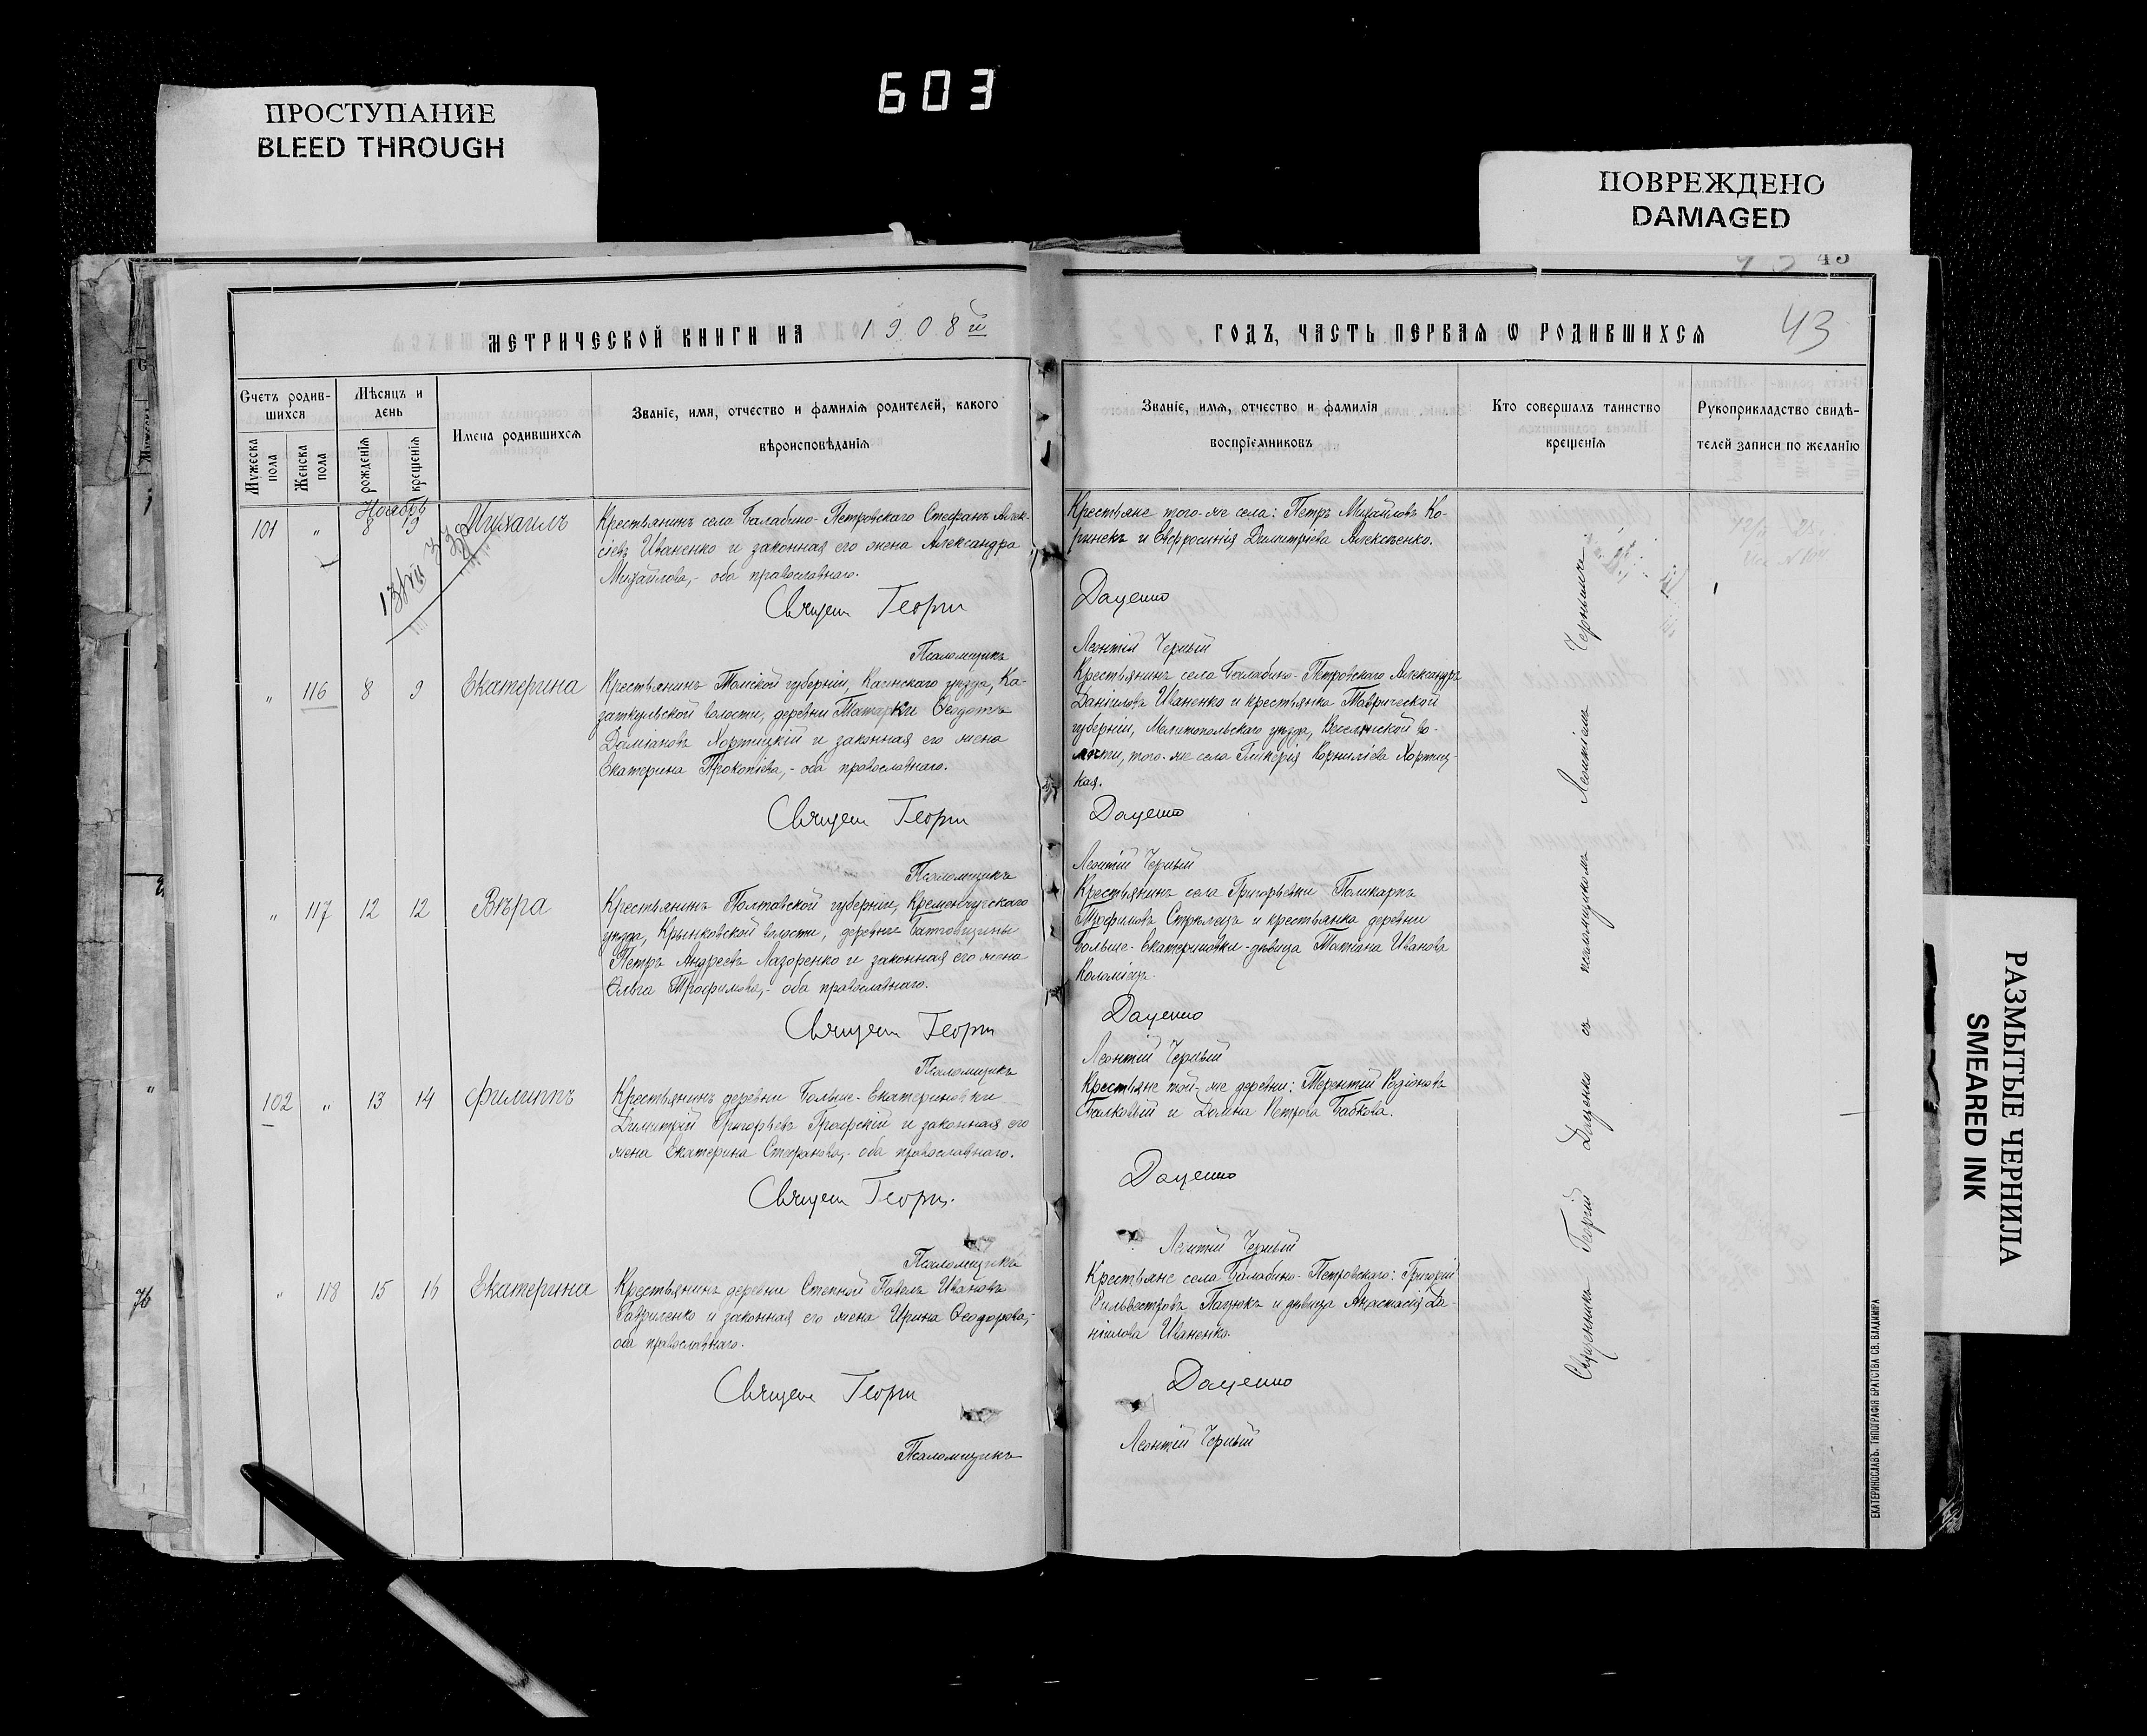 603
ПРОСТУПАНИЕ
BLEED THROUGH
ПОВРЕЖДЕНО
DAMAGED
МЕТРИЧЕСКОЙ КНИГИ НА 1908й
ГОДЪ, ЧАСТЬ ПЕРВАЯ Ѡ РОДИВШИХСЯ
43
Счетъ родив-
шихся
Мѣсяцъ и
день
Мужеска пола
Женска пола
рожденія
крещенія
Имена родившихся
Званіе, имя, отчество и фамилія родителей, какого
вѣроисповѣданія
Званіе, имя, отчество и фамилія
воспріемниковъ
Кто совершалъ таинство
крещенія
Рукоприкладство свидѣ-
телей записи по желанію
Ноябрь
101 " 8 9 Михаилъ
Крестьянинъ села Балабино-Петровскаго Стефанъ Алек-
сіевъ Иваненко и законная его жена Александра
Михайлова,- оба православнаго.
Священ Георги
Псаломщикъ
Крестьяне того-же села: Петръ Михайловъ Ко-
ринекъ и Евфросинія Димитріева Алексѣенко.
Даценко
Леонтій Черный
" 116 8 9 Екатерина
Крестьянинъ Томской губерніи, Каинскаго уѣзда, Ка-
заткульской волости, деревни Татарки Ѳеодотъ
Даміановъ Хортицкій и законная его жена
Екатерина Прокопіева,- оба православнаго.
Священ Георги
Псаломщикъ
Крестьянинъ села Балабино-Петровскаго Александръ
Даніиловъ Иваненко и крестьянка Таврической
губерніи, Мелитопольскаго уѣзда, Веселянской во-
лости, того-же села Гликерія Корниліева Хортиц-
кая.
Даценко
Леонтій Черный
" 117 12 12 Вѣра
Крестьянинъ Полтавской губерніи, Кременчугскаго
уѣзда, Крынковской волости, деревни
Петръ Андреевъ Лазоренко и законная его жена
Ольга Трофимова,- оба православнаго.
Священ Георги
Псаломщикъ
Крестьянинъ села Григорьевки Поликарпъ
Трофимовъ Стрѣлецъ и крестьянка деревни
Больше-Екатериновки-дѣвица Татіана Иванова
Коломіецъ.
Даценко
Леонтій Черный
102 " 13 14 Филиппъ
Крестьянинъ деревни Больше-Екатериновки
Димитрій Григорьевъ и законная его
жена Екатерина Стефанова,- оба православнаго.
Священ Георги.
Псаломщикъ
Крестьяне той-же деревни: Терентій Родіоновъ
и Домна Петрова Бабкова.
Даценко
Леонтій Черный
" 118 15 16 Екатерина
Крестьянинъ деревни Степной Павелъ Ивановъ
Гавриленко и законная его жена Ирина Ѳеодорова,-
оба православнаго.
Священ Георги
Псаломщикъ
Крестьяне села Балабино-Петровскаго: Григорій
Сильвестровъ Пацюкъ и дѣвица Анастасія Да-
ніилова Иваненко.
Даценко
Леонтій Черный
Священникъ Георгій Даценко съ псаломщикомъ Леонтіемъ Чернымъ
76
РАЗМЫТЫЕ ЧЕРНИЛА
SMEARED INK
ЕКАТЕРИНОСЛАВЪ. ТИПОГРАФІЯ БРАТСТВА СВ. ВЛАДИМІРА